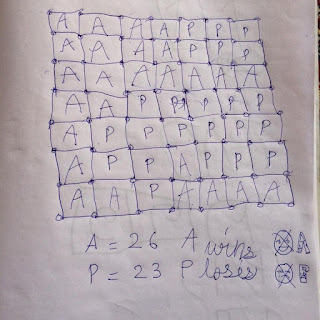 A A A A P P P
A A A A P P P
A A A A A A A
A A P P P P P
A P P P P P P
A P P A P P P
A A P A A A A
A = 26 A wins A
P = 23 P loses P